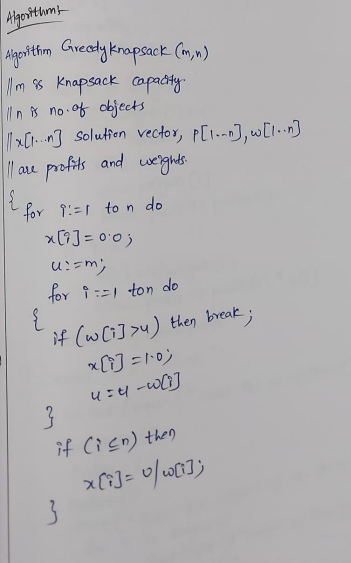 Algorithm:
Algorithm GreedyKnapsack (m,n)
// m is Knapsack capacity.
// n is no.of objects
// x[1...n] solution vector, P[1--n], w[1..n]
// are profits and weights.
{
for i:=1 to n do
x[i]=0.0;
u:=m;
for i:=1 to n do
{
if (w[i]>u) then break;
x[i]=1.0;
u=u-w[i]
}
if (i≤n) then
x[i]=u/w[i];
}